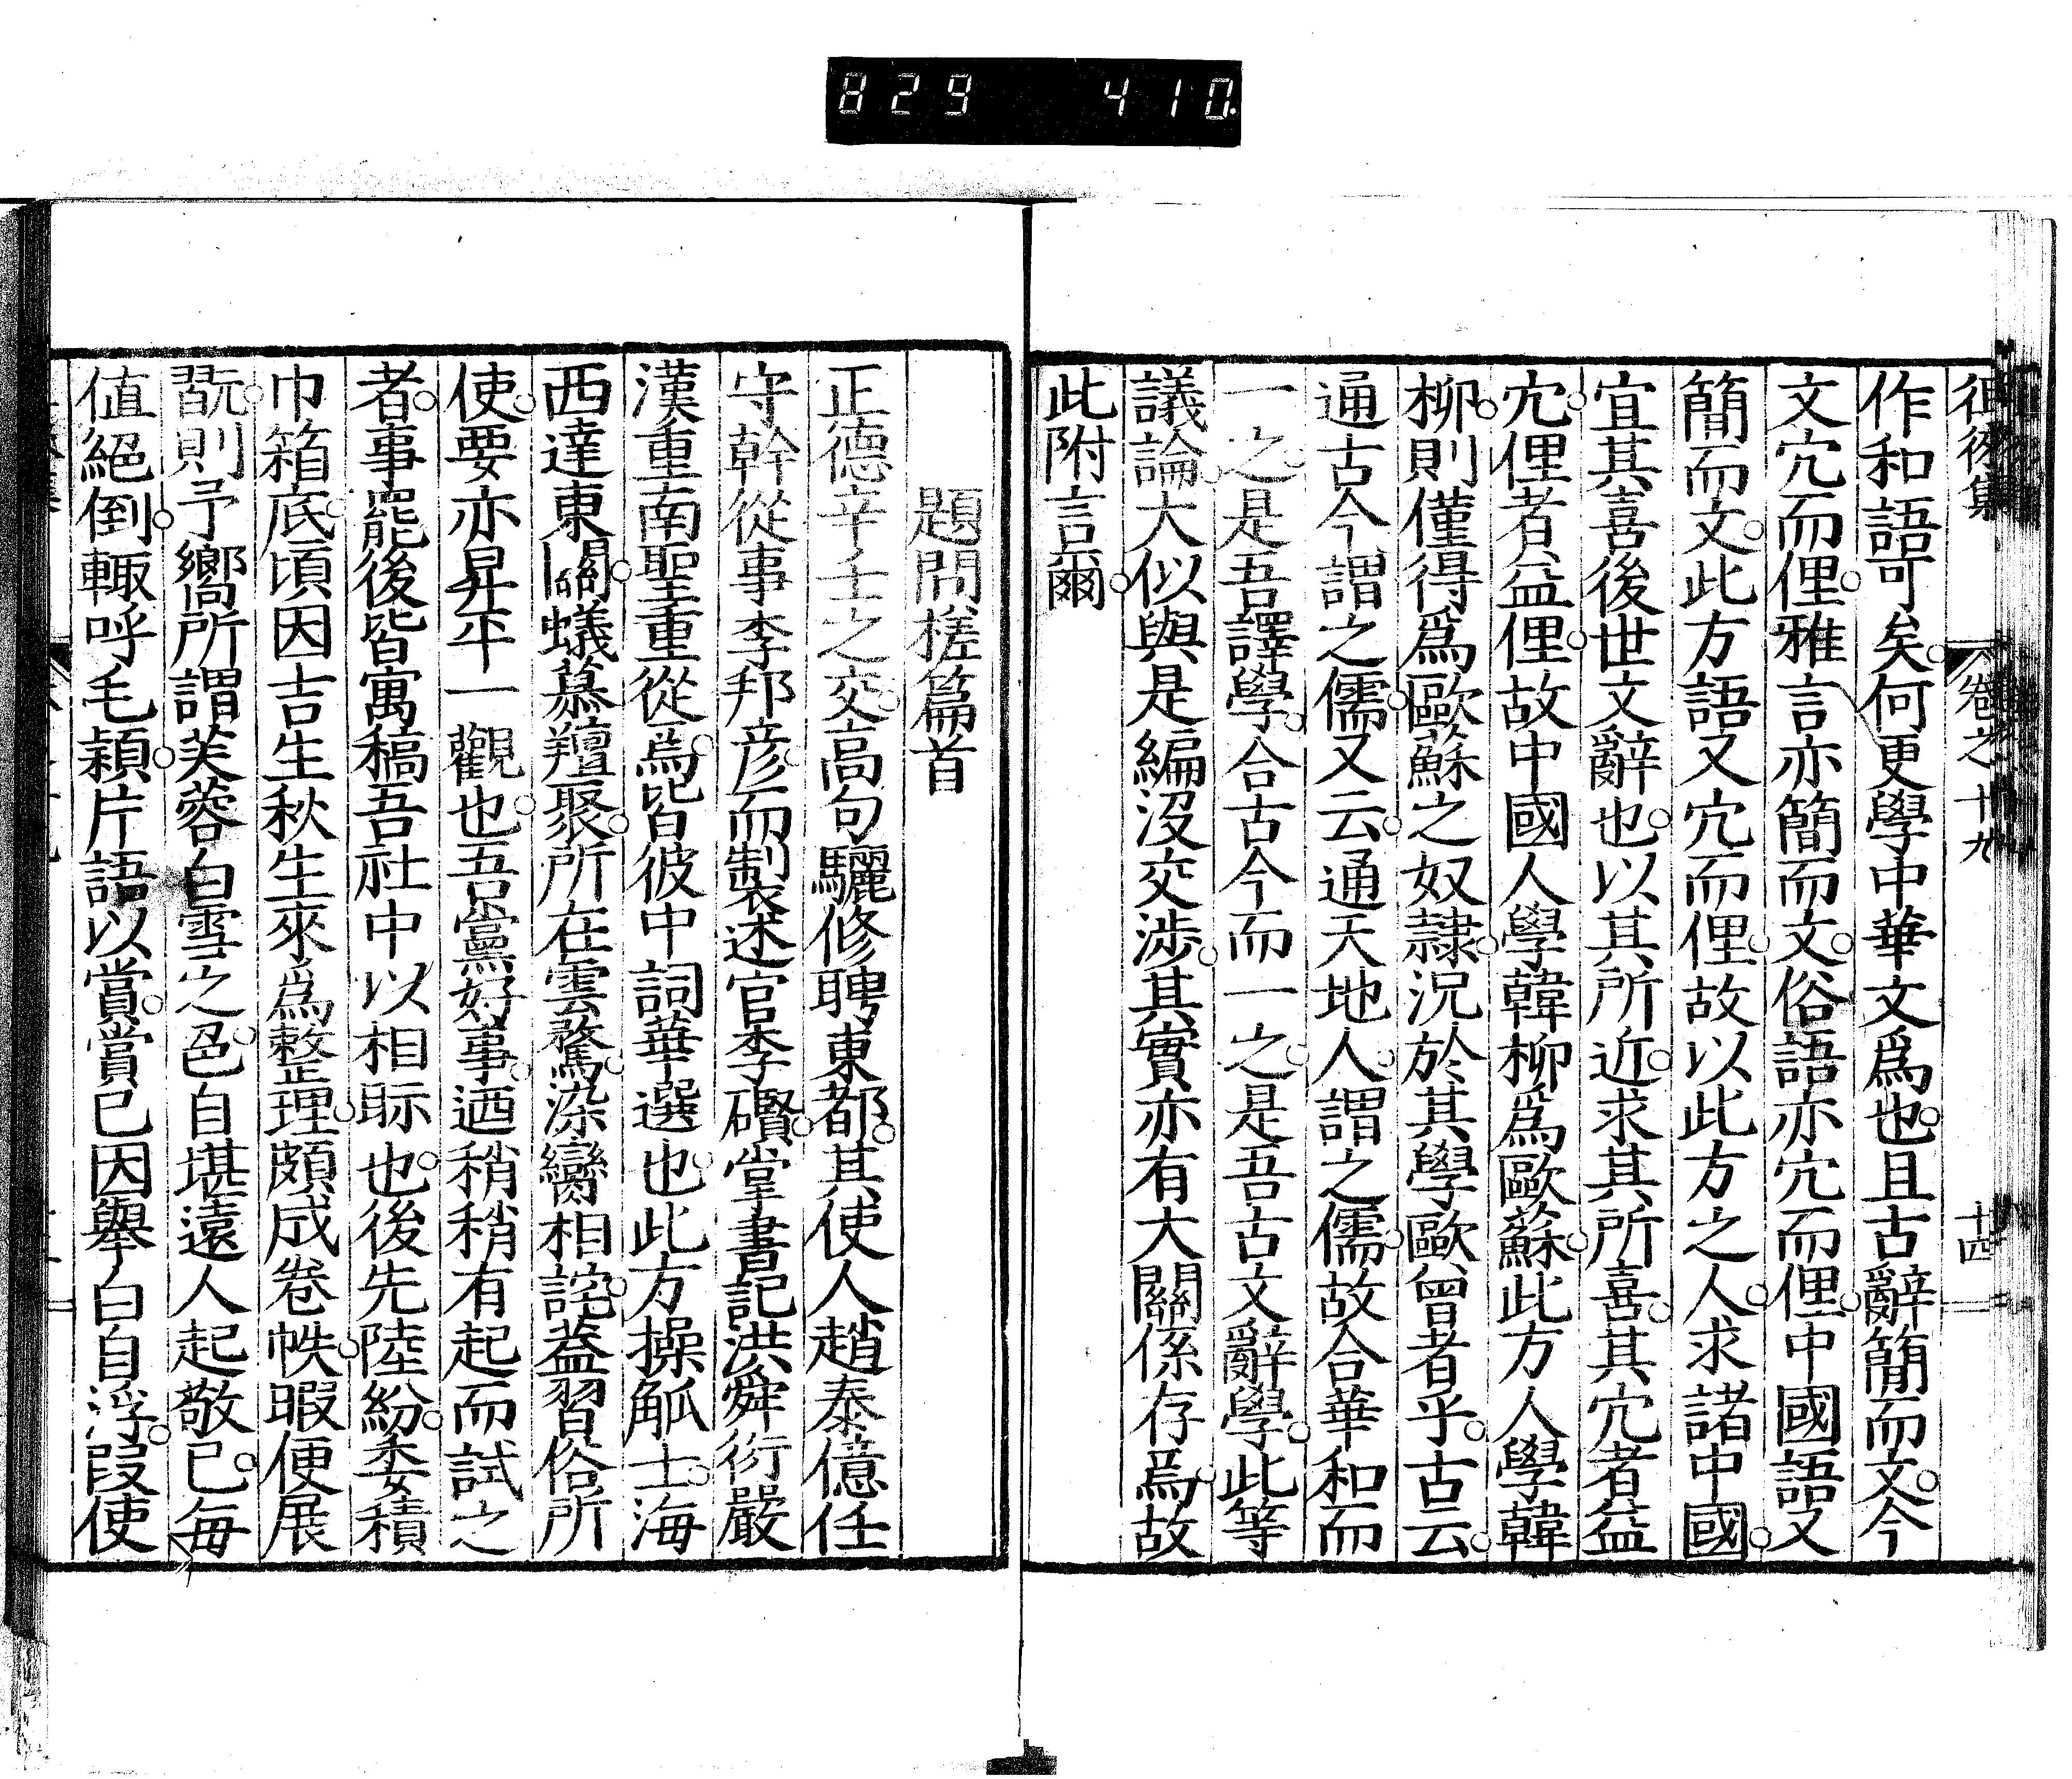 829 410
徂徠集 卷之十九 十四
作和語可矣何更學中華文爲也且古辭簡而文今
文宂而俚雅言亦簡而文俗語亦宂而俚中國語又
簡而文此方語又宂而俚故以此方之人求諸中國
宜其喜後世文辭也以其所近求其所喜其宂者益
宂俚者益俚故中國人學韓柳爲歐蘇此方人學韓
柳則僅得爲歐蘇之奴隷況於其學歐曾者乎古云
通古今謂之儒又云通天地人謂之儒故合華和而
一之是吾譯學合古今而一之是吾古文辭學此等
議論大似與是編沒交涉其實亦有大關係存焉故
此附言爾
題問槎篇首
正德辛壬之交高句驪修聘東都其使人趙泰億任
守幹從事李邦彥而製述官李礥掌書記洪舜衍嚴
漢重南聖重從焉皆彼中詞華選也此方操觚士海
西達東關蟻慕羶聚所在雲騖染臠相詫蓋習俗所
使要亦昇平一觀也吾黨好事迺稍稍有起而試之
者事罷後皆寓稿吾社中以相眎也後先陸紛委積
巾箱底頃因吉生秋生來爲整理頗成卷帙暇便展
翫則予嚮所謂芙蓉白雪之色自堪遠人起敬已每
値絕倒輙呼毛穎片語以賞賞已因舉白自浮叚使